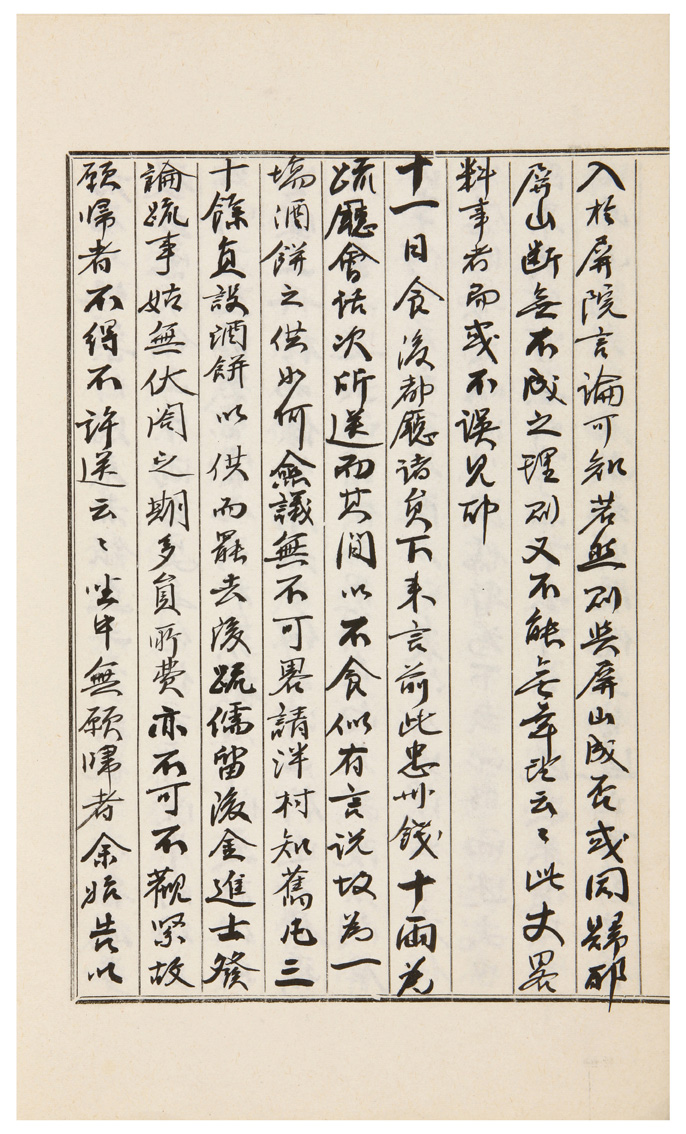 入於屏院言論可知若此則与屏山成否或因歸耶
屏山斷無不成之理則又不能無年限云〻此丈畧
料事者而或不誤見耶
十一日食後都廳諸員下來言前此忠州錢十兩為
疏廳會話次所送而其間以不食似有言說故為一
塲酒餠之供如何僉議無不可畧請泮村知舊凡三
十餘員設酒餠以供而罷去後疏儒留後金進士發
論疏事姑無伏閤之期多員所費亦不可不觀緊故
願歸者不得不許送云〻坐中無願歸者余始告以